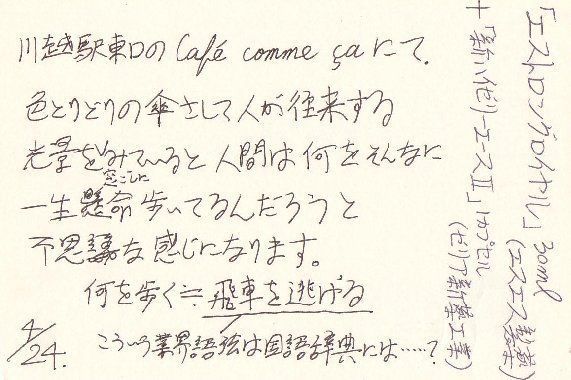 川越駅東口の Café comme ça にて.
色とりどりの傘さして人が往来する
光景をみていると人間は何をそんなに
窓ごしに
一生懸命歩いてるんだろうと
不思議な感じになります。
何を歩く≒飛車を逃げる
4/24.
こういう業界語弦は国語辞典には……?
「エストロングロイヤル」30ml
(エスエス製薬)
+「新ハイゼリーエースⅡ」1カプセル
(ゼリア新薬工業)